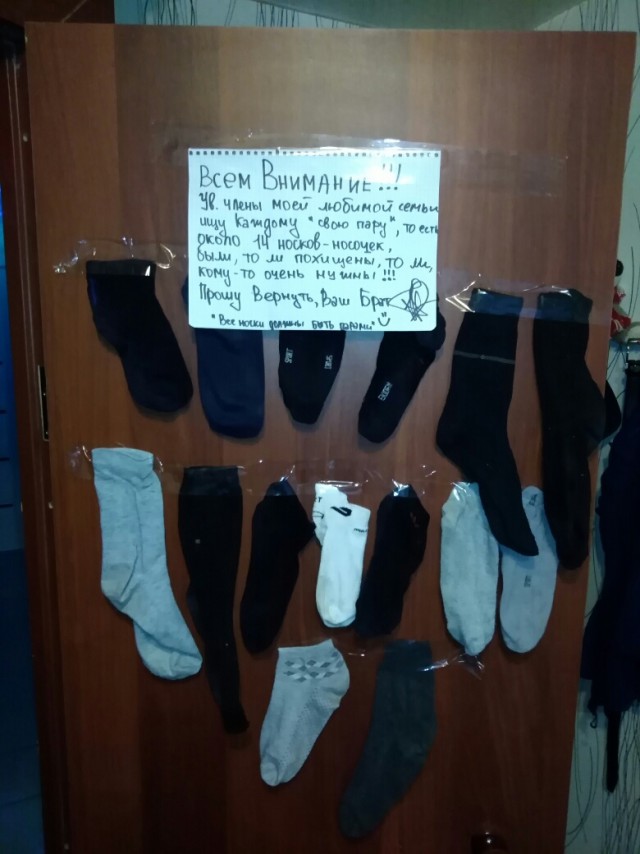 Всем Внимание!!!
Ув. члены моей любимой семьи
ищу каждому "свою пару", то есть
около 14 носков-носочек,
были, то ли похищены, то ли,
кому-то очень нужны!!!
Прошу Вернуть, Ваш Брат
"Все носки должны быть парами"
SPORT